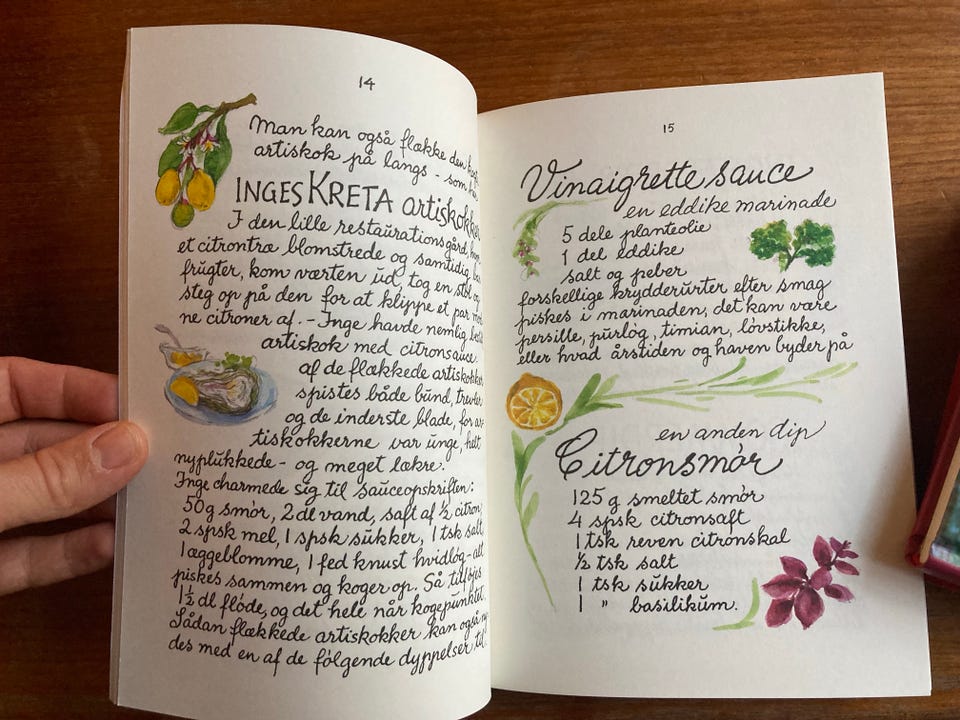 14
Man kan også flække den
artiskok på langs - som
INGES KRETA artiskokker
I den lille restaurationsgård, hvor
et citrontræ blomstrede og samtidig bar
frugter, kom værten ud, tog en stol og
steg op på den for at klippe et par
ne citroner af. - Inge havde nemlig
artiskok med citronsauce.
af de flækkede artiskokker
spistes både bund, trevler
og de inderste blade, for ar-
tiskokkerne var unge, helt
nyplukkede - og meget lækre.
Inge charmede sig til sauceopskriften:
50g smør, 2 dl vand, saft af ½ citron,
2 spsk mel, 1 spsk sukker, 1 tsk salt,
1 æggeblomme, 1 fed knust hvidløg - alt
piskes sammen og koger op. Så tilføjes
1½ dl fløde, og det hele når kogepunktet.
Sådan flækkede artiskokker kan også
des med en af de følgende dyppelser til!
15
Vinaigrette sauce
en eddike marinade
5 dele planteolie
1 del eddike
salt og peber
forskellige krydderurter efter smag
piskes i marinaden, det kan være
persille, purløg, timian, løvstikke,
eller hvad årstiden og haven byder på
en anden dip
Citronsmør
125 g smeltet smør
4 spsk citronsaft
1 tsk reven citronskal
½ tsk salt
1 tsk sukker
1 " basilikum.